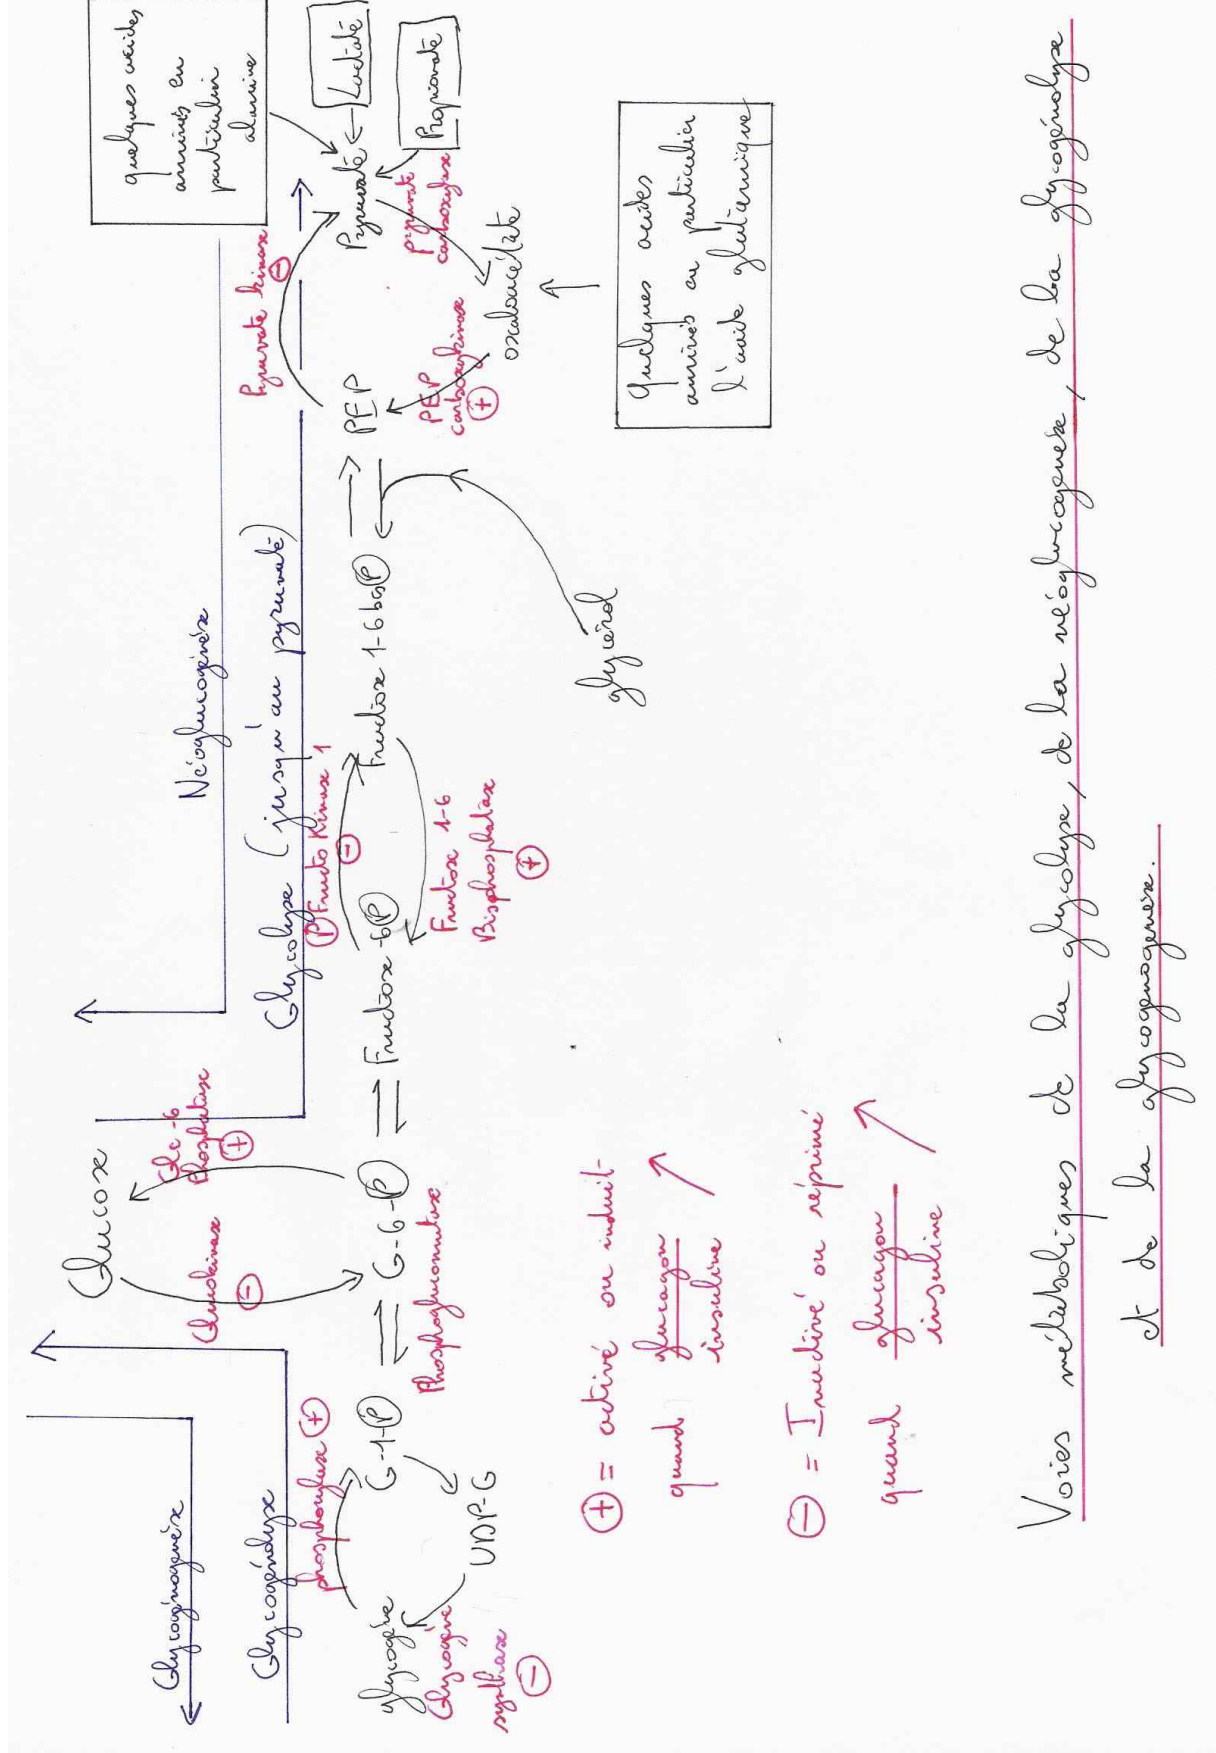 Glycogénogenèse
Glycogénolyse
Néoglucogénèse
Glycolyse (jusqu'au pyruvate)
Glucose
Glucokinase
⊖
Glc-6
Phosphatase
⊕
phosphorylase ⊕
glycogène
Glycogène
synthase
⊖
UDP-G
G-1-Ⓟ
Phosphoglucomutase
G-6-Ⓟ
Fructose-6Ⓟ
ⓅFructo Kinase 1
⊖
Fructose 1-6
Bisphosphatase
⊕
Fructose 1-6 bisⓅ
glycérol
PEP
Pyruvate kinase
⊖
PEP
carboxykinase
⊕
oxaloacétate
Pyruvate
Pyruvate
carboxylase
quelques acides
aminés en
particulier
alanine
Lactate
Propionate
Quelques acides
aminés en particulier
l'acide glutamique
⊕ = activé ou induit
quand glucagon
insuline
⊖ = Inactivé ou réprimé
quand glucagon
insuline
Voies métaboliques de la glycolyse, de la néoglucogenèse, de la glycogénolyse
et de la glycogenogenèse.